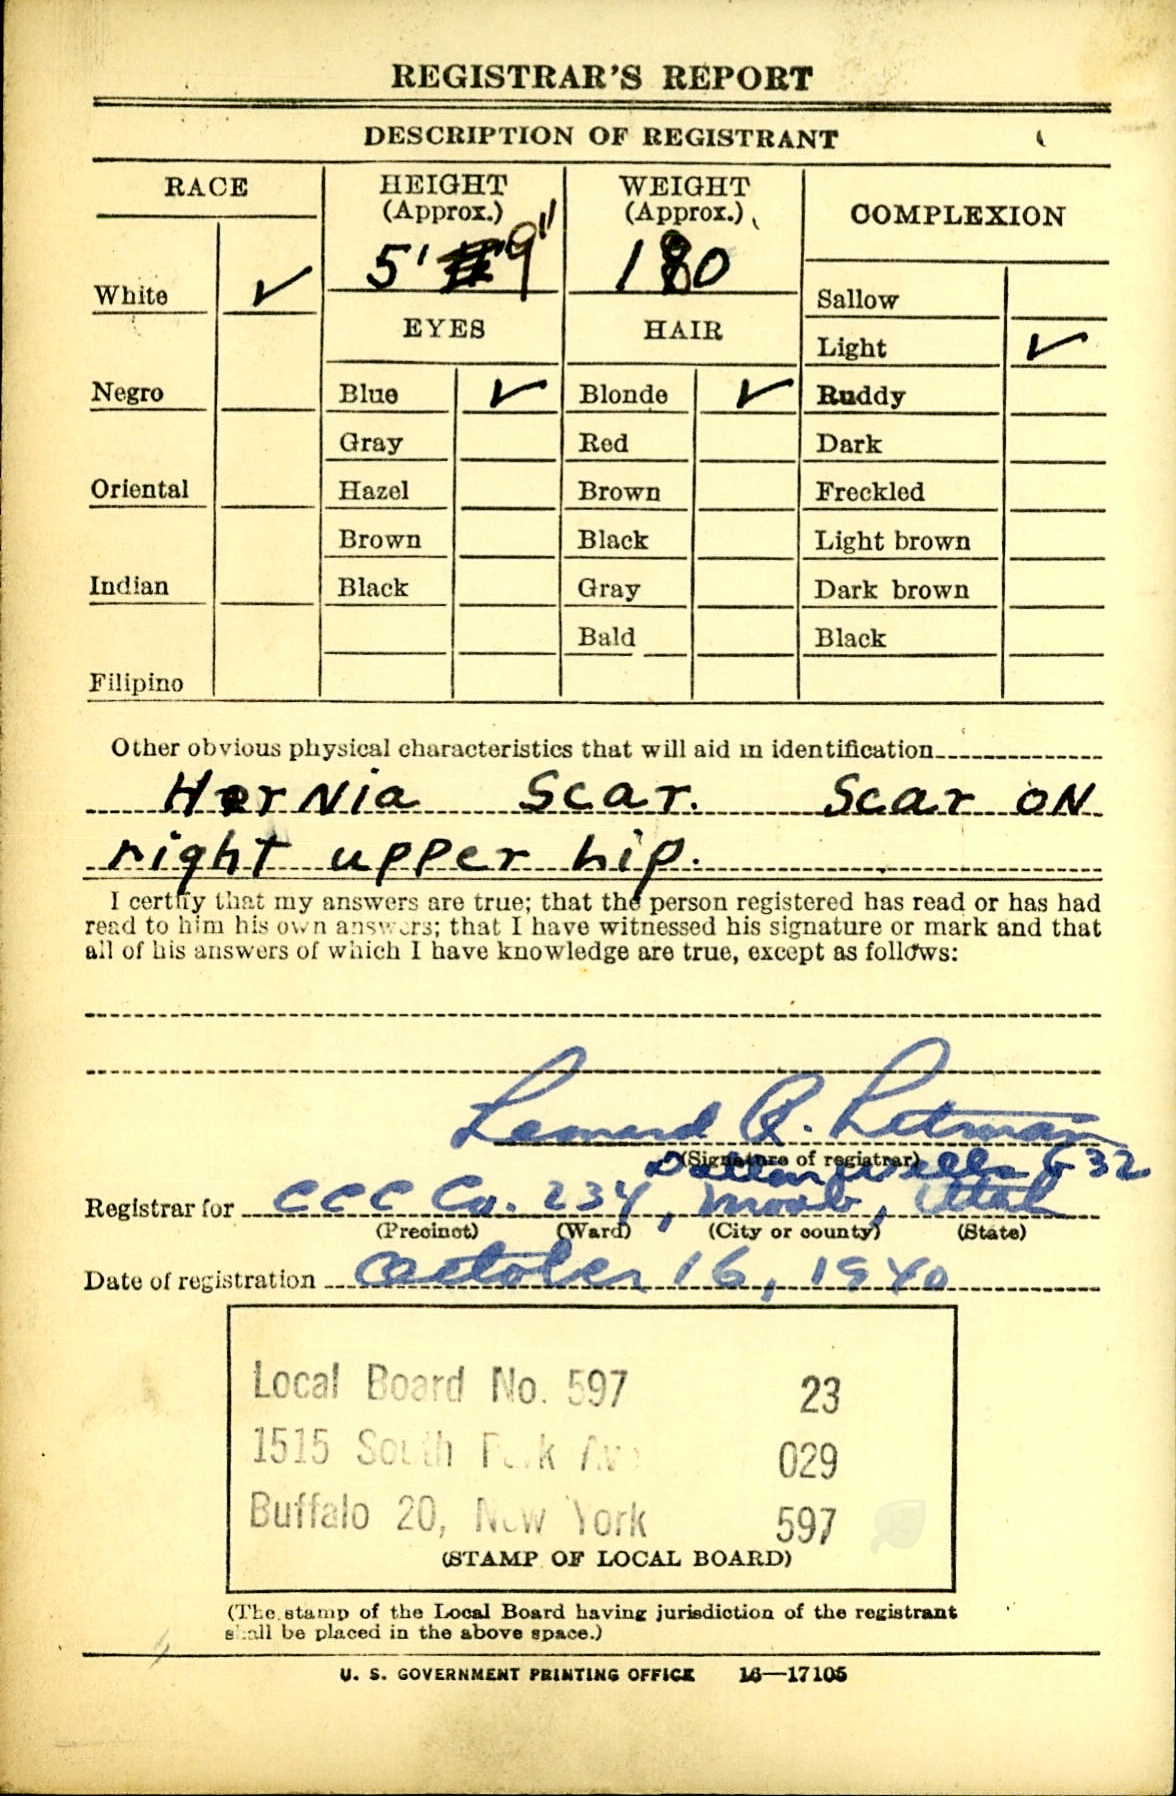 REGISTRAR'S REPORT
DESCRIPTION OF REGISTRANT
RACE
HEIGHT
(Approx.)
5' 9"
WEIGHT
(Approx.)
180
COMPLEXION
White ✓
EYES
HAIR
Sallow
Light ✓
Negro
Blue ✓
Blonde ✓
Ruddy
Gray
Red
Dark
Oriental
Hazel
Brown
Freckled
Brown
Black
Light brown
Indian
Black
Gray
Dark brown
Bald
Black
Filipino
Other obvious physical characteristics that will aid in identification
Hernia Scar. Scar on
right upper hip.
I certify that my answers are true; that the person registered has read or has had
read to him his own answers; that I have witnessed his signature or mark and that
all of his answers of which I have knowledge are true, except as follows:
Leonard R.
(Signature of registrar)
G 32
Registrar for CCC Co. 234, Moab, Utah
(Precinct) (Ward) (City or county) (State)
Date of registration October 16, 1940
Local Board No. 597 23
1515 South Park Ave 029
Buffalo 20, New York 597
(STAMP OF LOCAL BOARD)
(The stamp of the Local Board having jurisdiction of the registrant
shall be placed in the above space.)
U. S. GOVERNMENT PRINTING OFFICE 16—17105